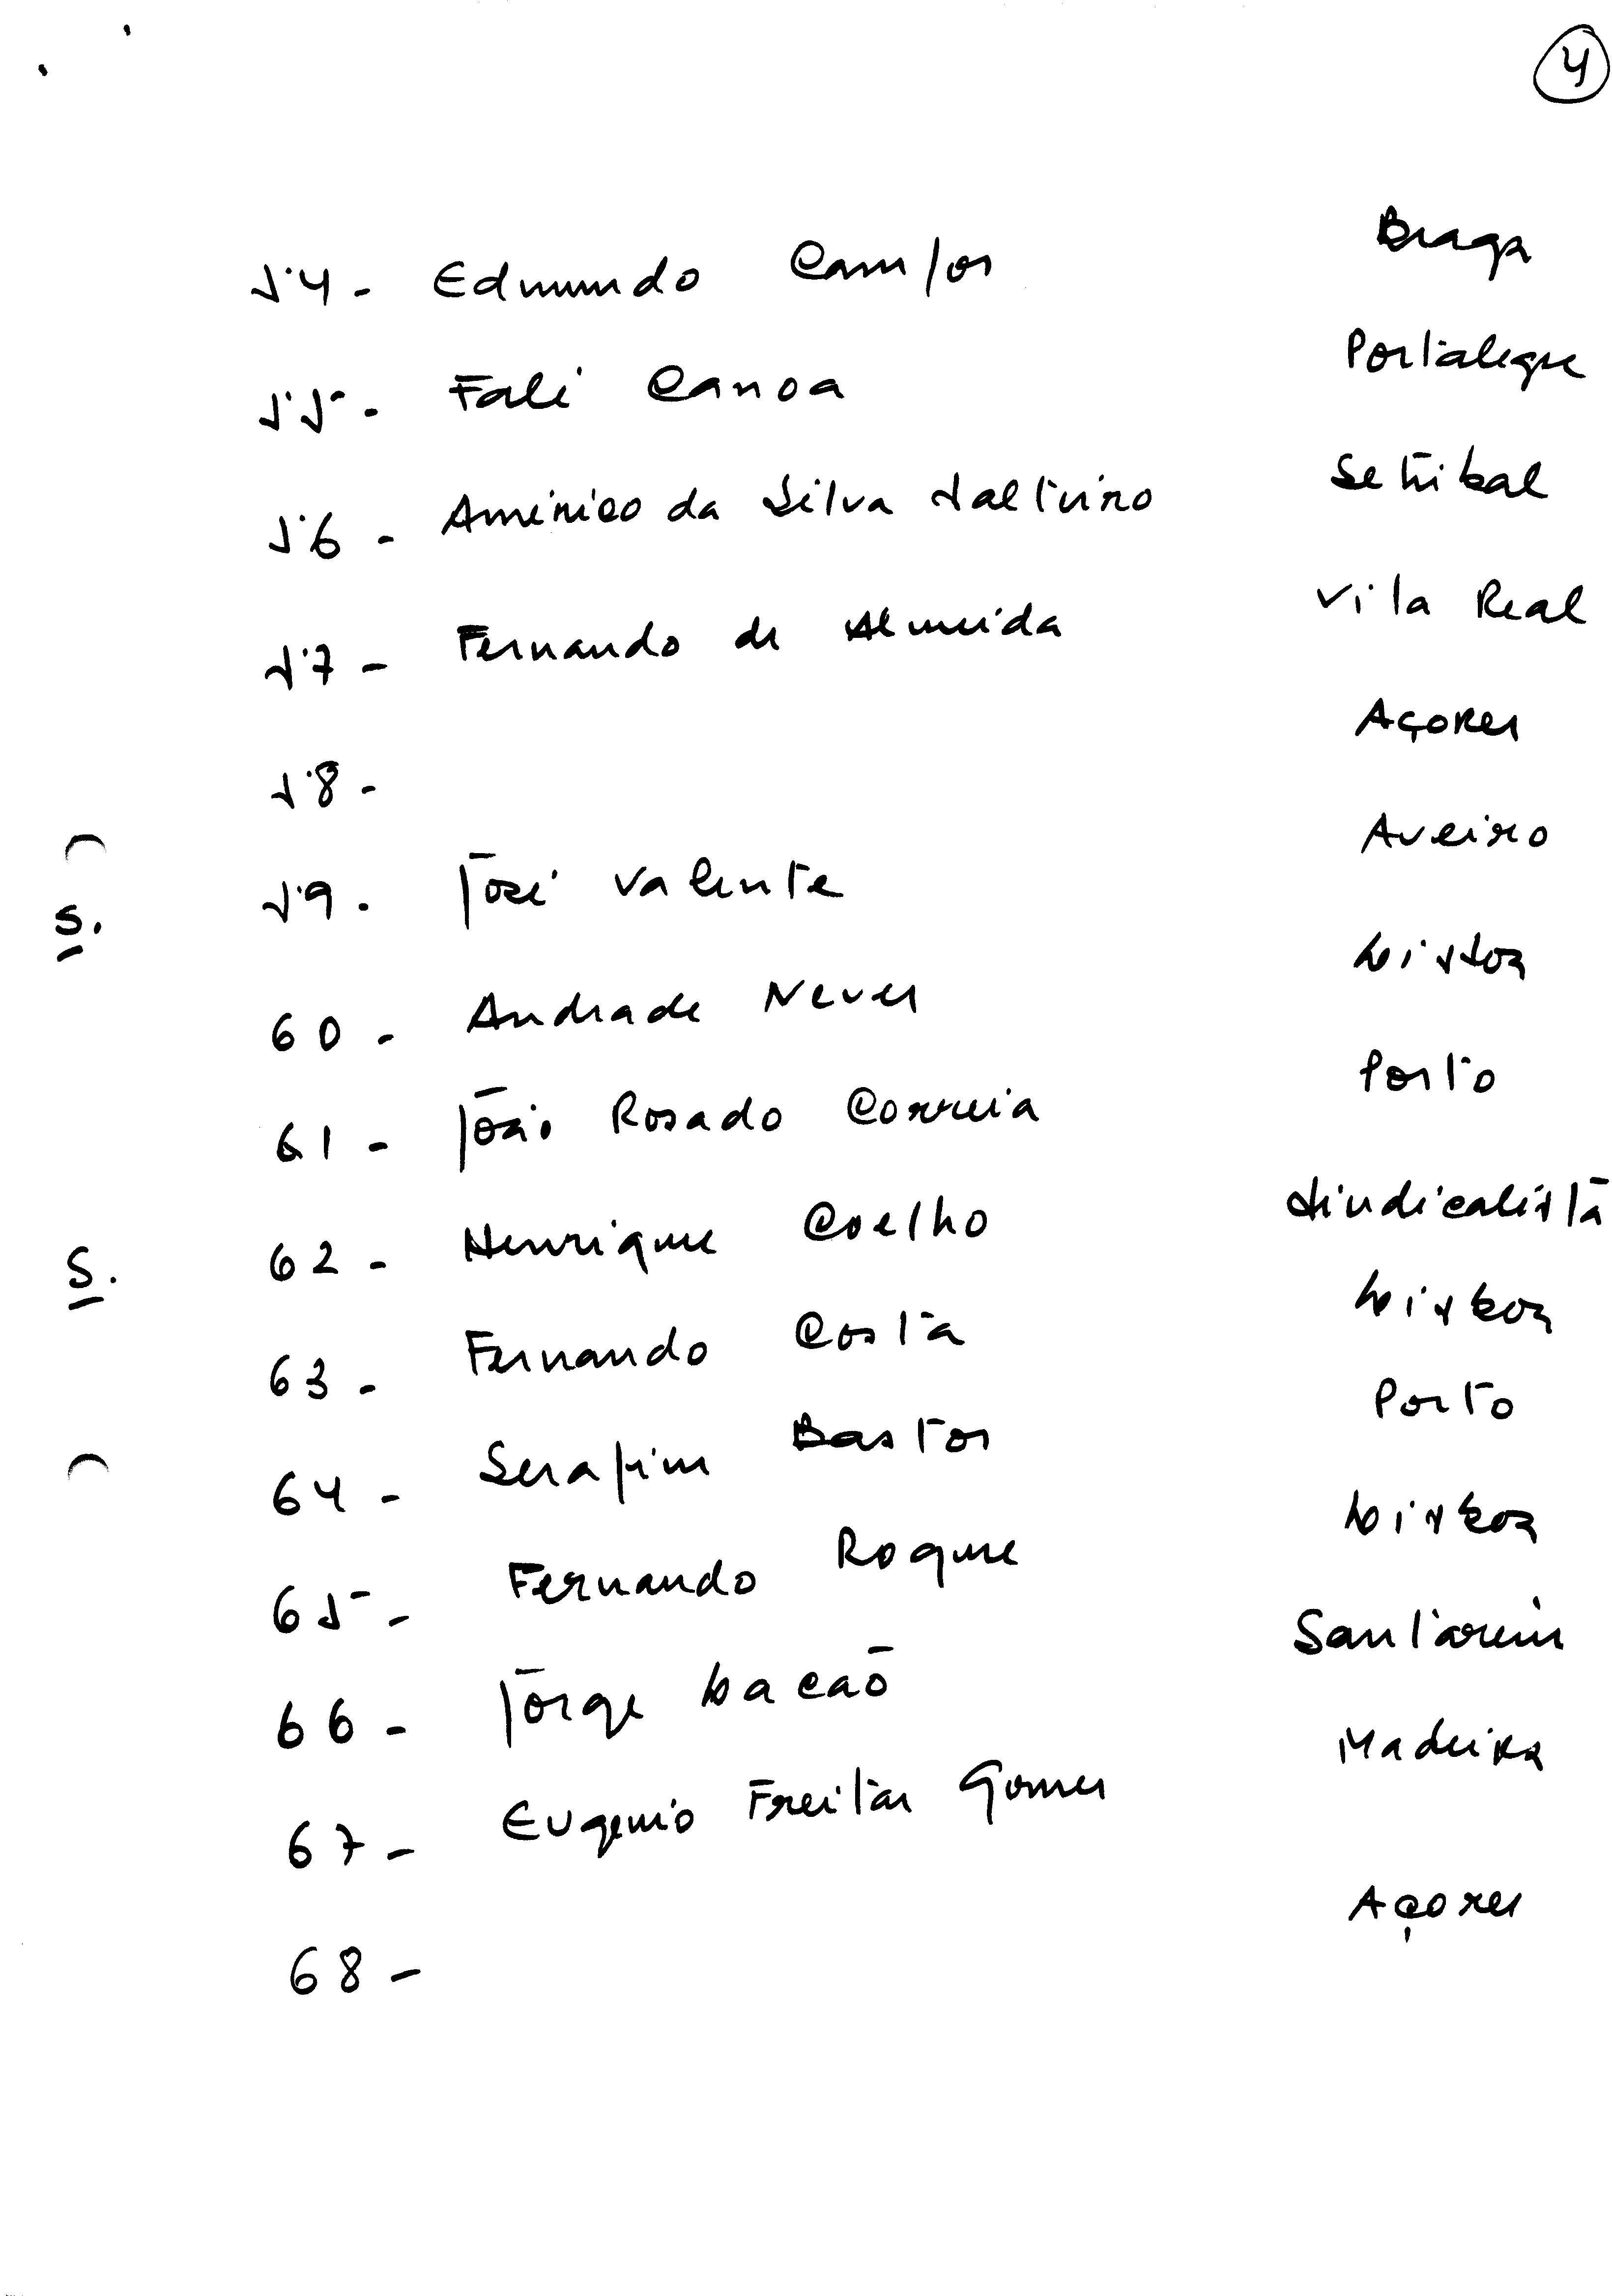 4
54 - Edmundo Campos Braga
55 - Falé Canoa Portalegre
56 - Américo da Silva Salteiro Setúbal
57 - Fernando de Almeida Vila Real
58 - Açores
S. 59 - José Valente Aveiro
60 - Andrade Neves Lisboa
61 - João Rosado Correia Porto
S. 62 - Henrique Coelho Sindicalista
63 - Fernando Costa Lisboa
64 - Serafim Bastos Porto
65 - Fernando Roque Lisboa
66 - Jorge Lacão Santarém
67 - Eugenio Freitas Gomes Madeira
68 - Açores